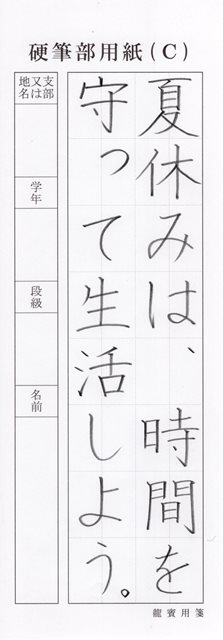 硬筆部用紙(C)
夏休みは、時間を
守って生活しよう。
支部又は地名
学年
段級
名前
龍賓用箋